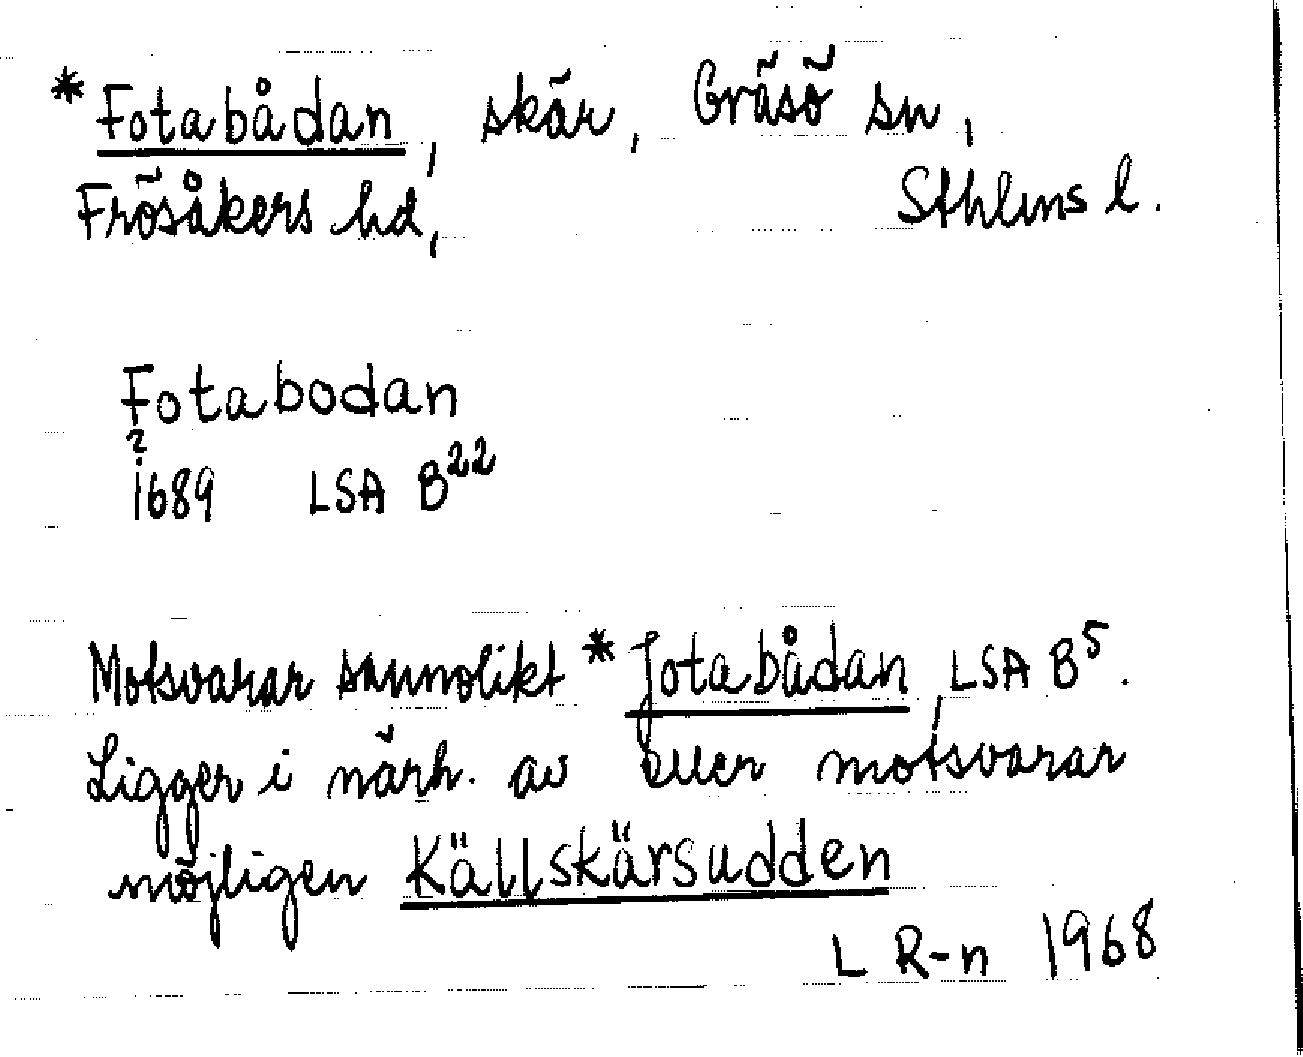 *Fotabådan, skär, Gräsö sn,
Frösåkers hd, Sthlms l.
Fotabodan
?
1689 LSA B²²
Motsvarar sannolikt *Jotabådan, LSA B⁵.
Ligger i närh. av eller motsvarar
möjligen Källskärsudden
L R-n 1968